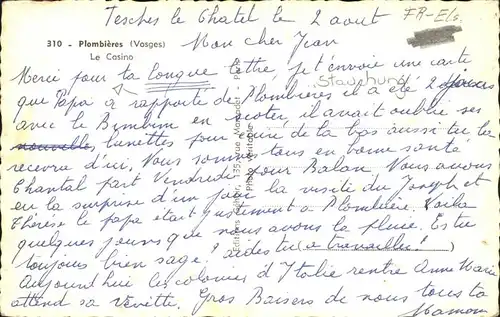 Tesches le Chatel le 2 aout
FR-Els.
310 - Plombières (Vosges)
Le Casino
Mon cher Jean
Merci pour ta longue lettre, je t'envoie une carte
Stadthund
que Papa a rapporté de Plombières il a été 2 jours
avec le Bimbim en scoter, il avait oublié ses
nouvelle, lunettes pour lire de la bas aussi tu les
recevra d'ici. Nous sommes tous en bonne santé
Chantal part Vendredi pour Balan, Nous avons
eu la surprise d'un jour la visite du Joseph et
Thérèse le papa était justement a Plombière. Voila
quelques jours que nous avons la pluie. Es tu
toujours bien sage? aides tu (a travailler!)
Aujourd'hui les colonies d'Italie rentre Anne Marie
attend sa Venitte. Gros Baisers de nous tous ta
Maman